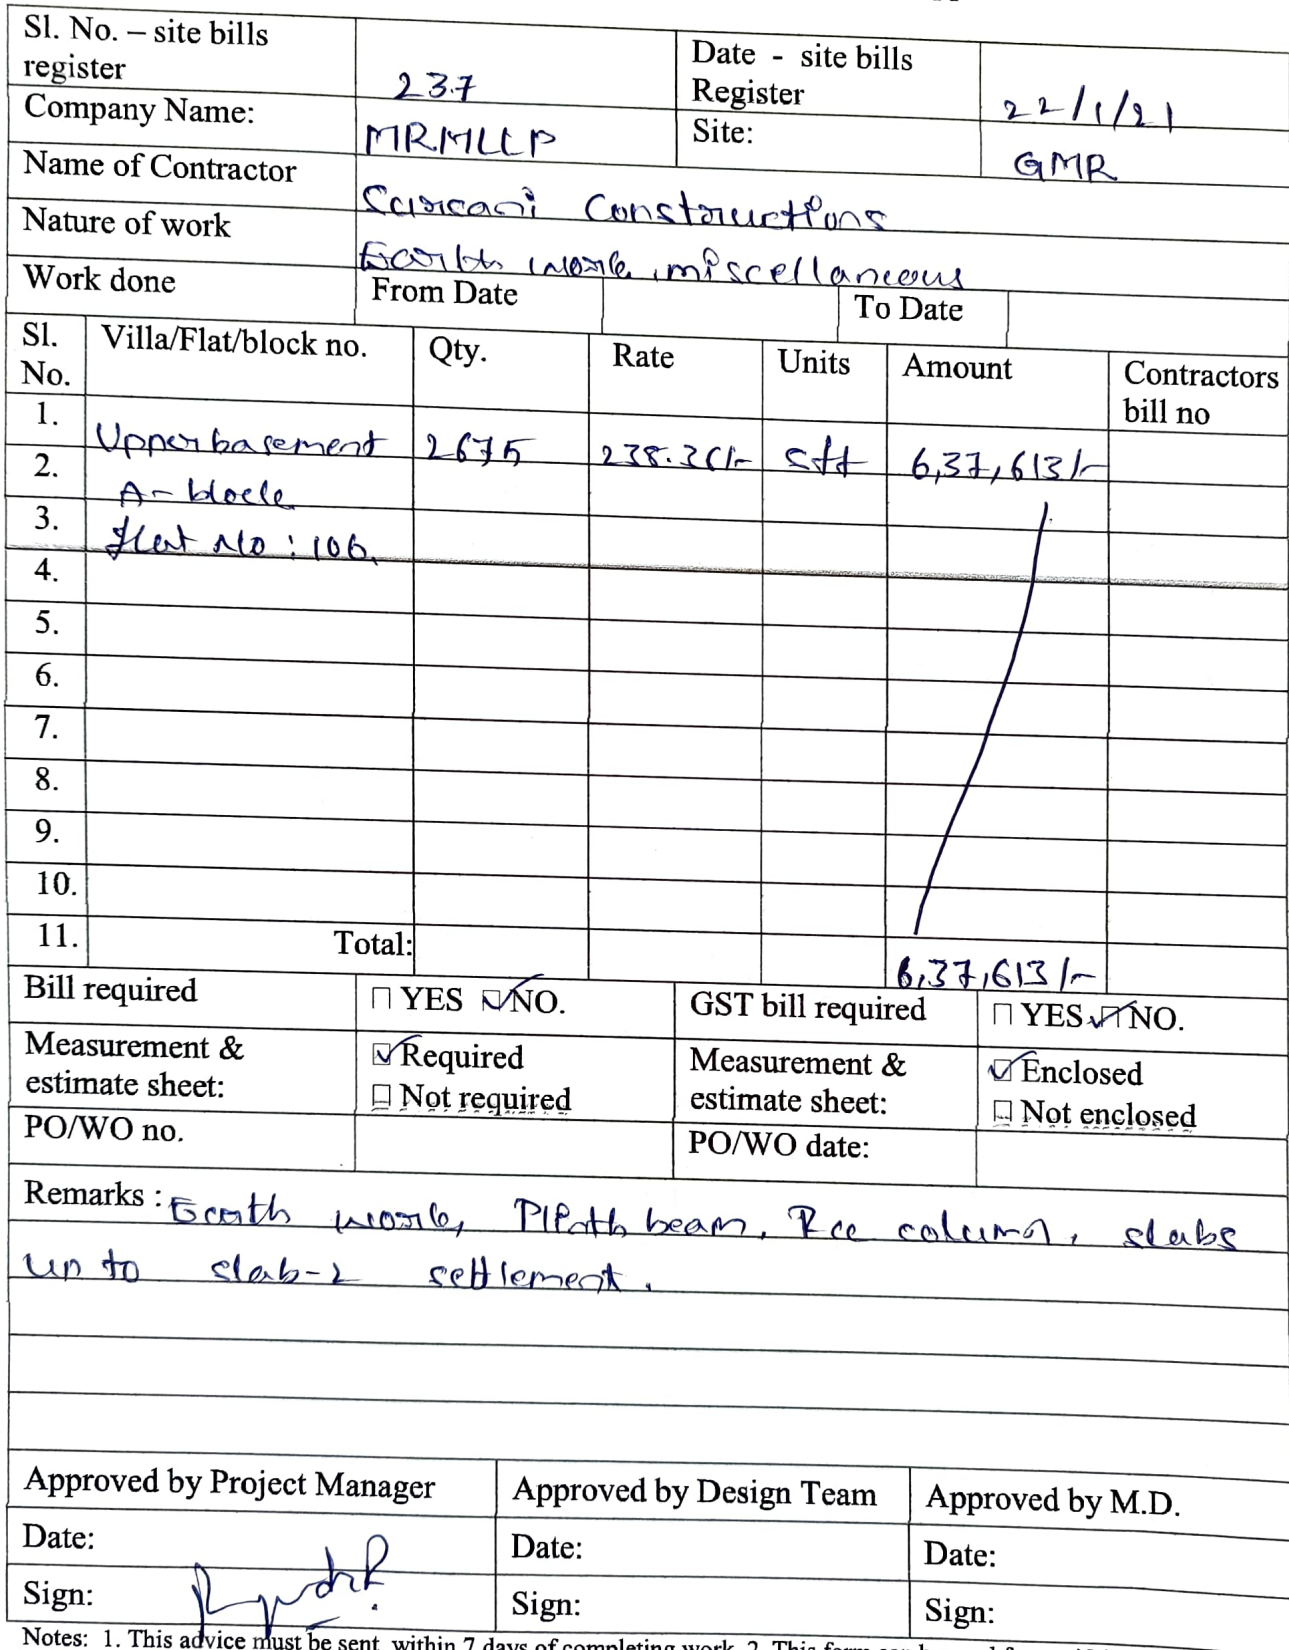 Sl. No. – site bills register 237 Date - site bills Register 22/1/21
Company Name: MRMLLP Site: GMR
Name of Contractor Constructions
Nature of work Earth work, miscellaneous
Work done From Date To Date
Sl. No. Villa/Flat/block no. Qty. Rate Units Amount Contractors bill no
1. Upper basement 2675 238.36/- sft 6,37,613/-
2. A-block
3. flat No: 106.
4.
5.
6.
7.
8.
9.
10.
11. Total: 6,37,613/-
Bill required YES NO. GST bill required YES NO.
Measurement & estimate sheet: Required Measurement & estimate sheet: Enclosed
Not required Not enclosed
PO/WO no. PO/WO date:
Remarks : Earth work, Plinth beam, Rcc column, slabs
up to slab-2 settlement.
Approved by Project Manager Approved by Design Team Approved by M.D.
Date: Date: Date:
Sign: Sign: Sign:
Notes: 1. This advice must be sent within 7 days of completing work. 2. This form can be used